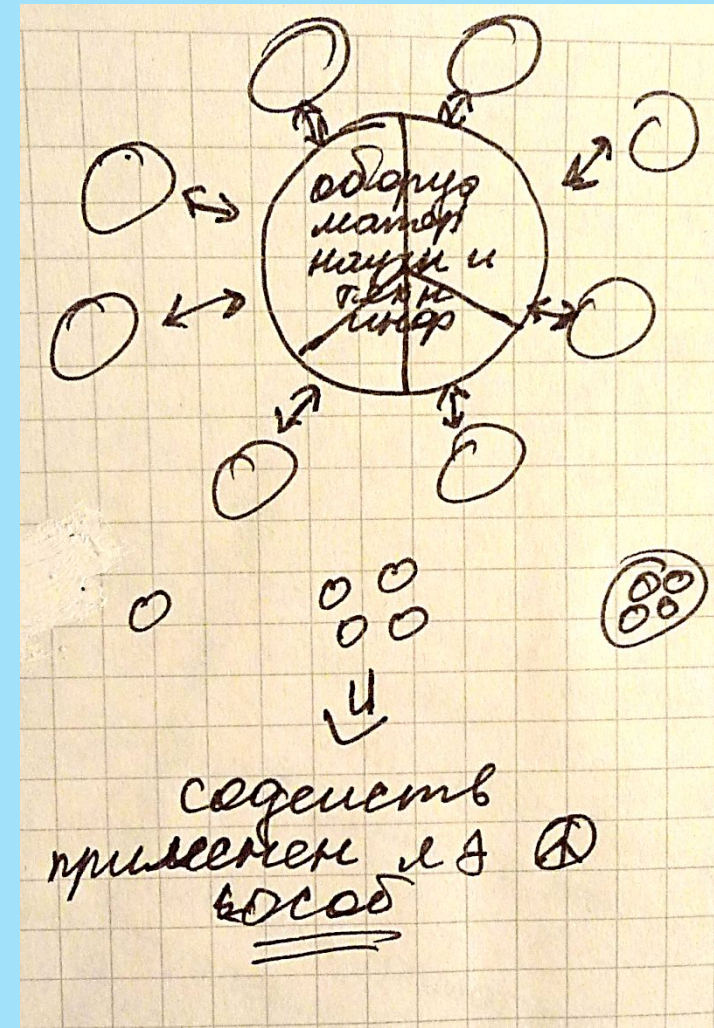 оборуд
матер
научн и
техн
инф
содейств
применен
особ